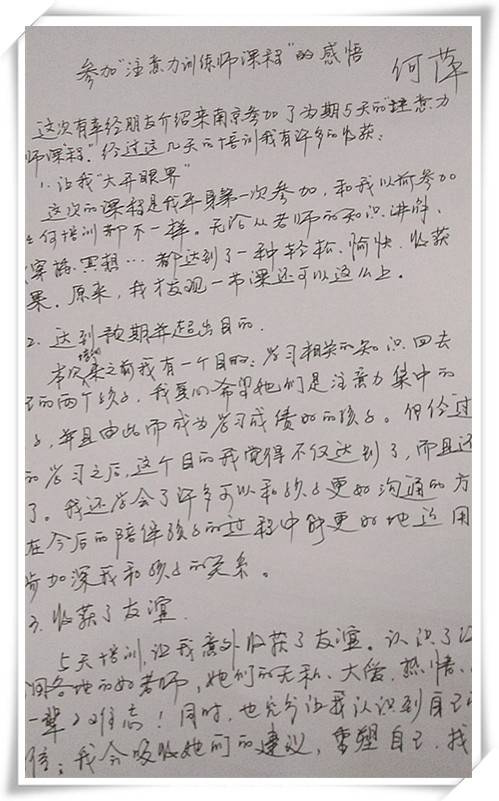 参加“注意力训练师课程”的感悟
何萍
这次有幸经朋友介绍来南京参加了为期5天的“注意力
师课程”。经过这几天的培训我有许多的收获：
1. 让我“大开眼界”
这次的课程是我平身第一次参加，和我以前参加
何培训都不一样。无论从老师的知识、讲解、
穿插、冥想…都达到了一种轻松、愉快、收获
果。原来，我才发现一节课还可以这么上。
2. 达到预期并超出目的.
本次培训来之前我有一个目的：学习相关的知识回去
的两个孩子，我要以希望她们是注意力集中的
子，并且由此而成为学习成绩好的孩子。但经过
的学习之后，这个目的我觉得不仅达到了，而且还
了。我还学会了许多可以和孩子更好沟通的方
在今后的陪伴孩子的过程中能更好地运用
加深我和孩子的关系。
3. 收获了友谊.
5天培训，让我意外收获了友谊。认识了
各地的好老师，她们的无私、大爱、热情、
一辈子难忘！同时，也充分让我认识到自己
我会吸收她们的建议，重塑自己，找